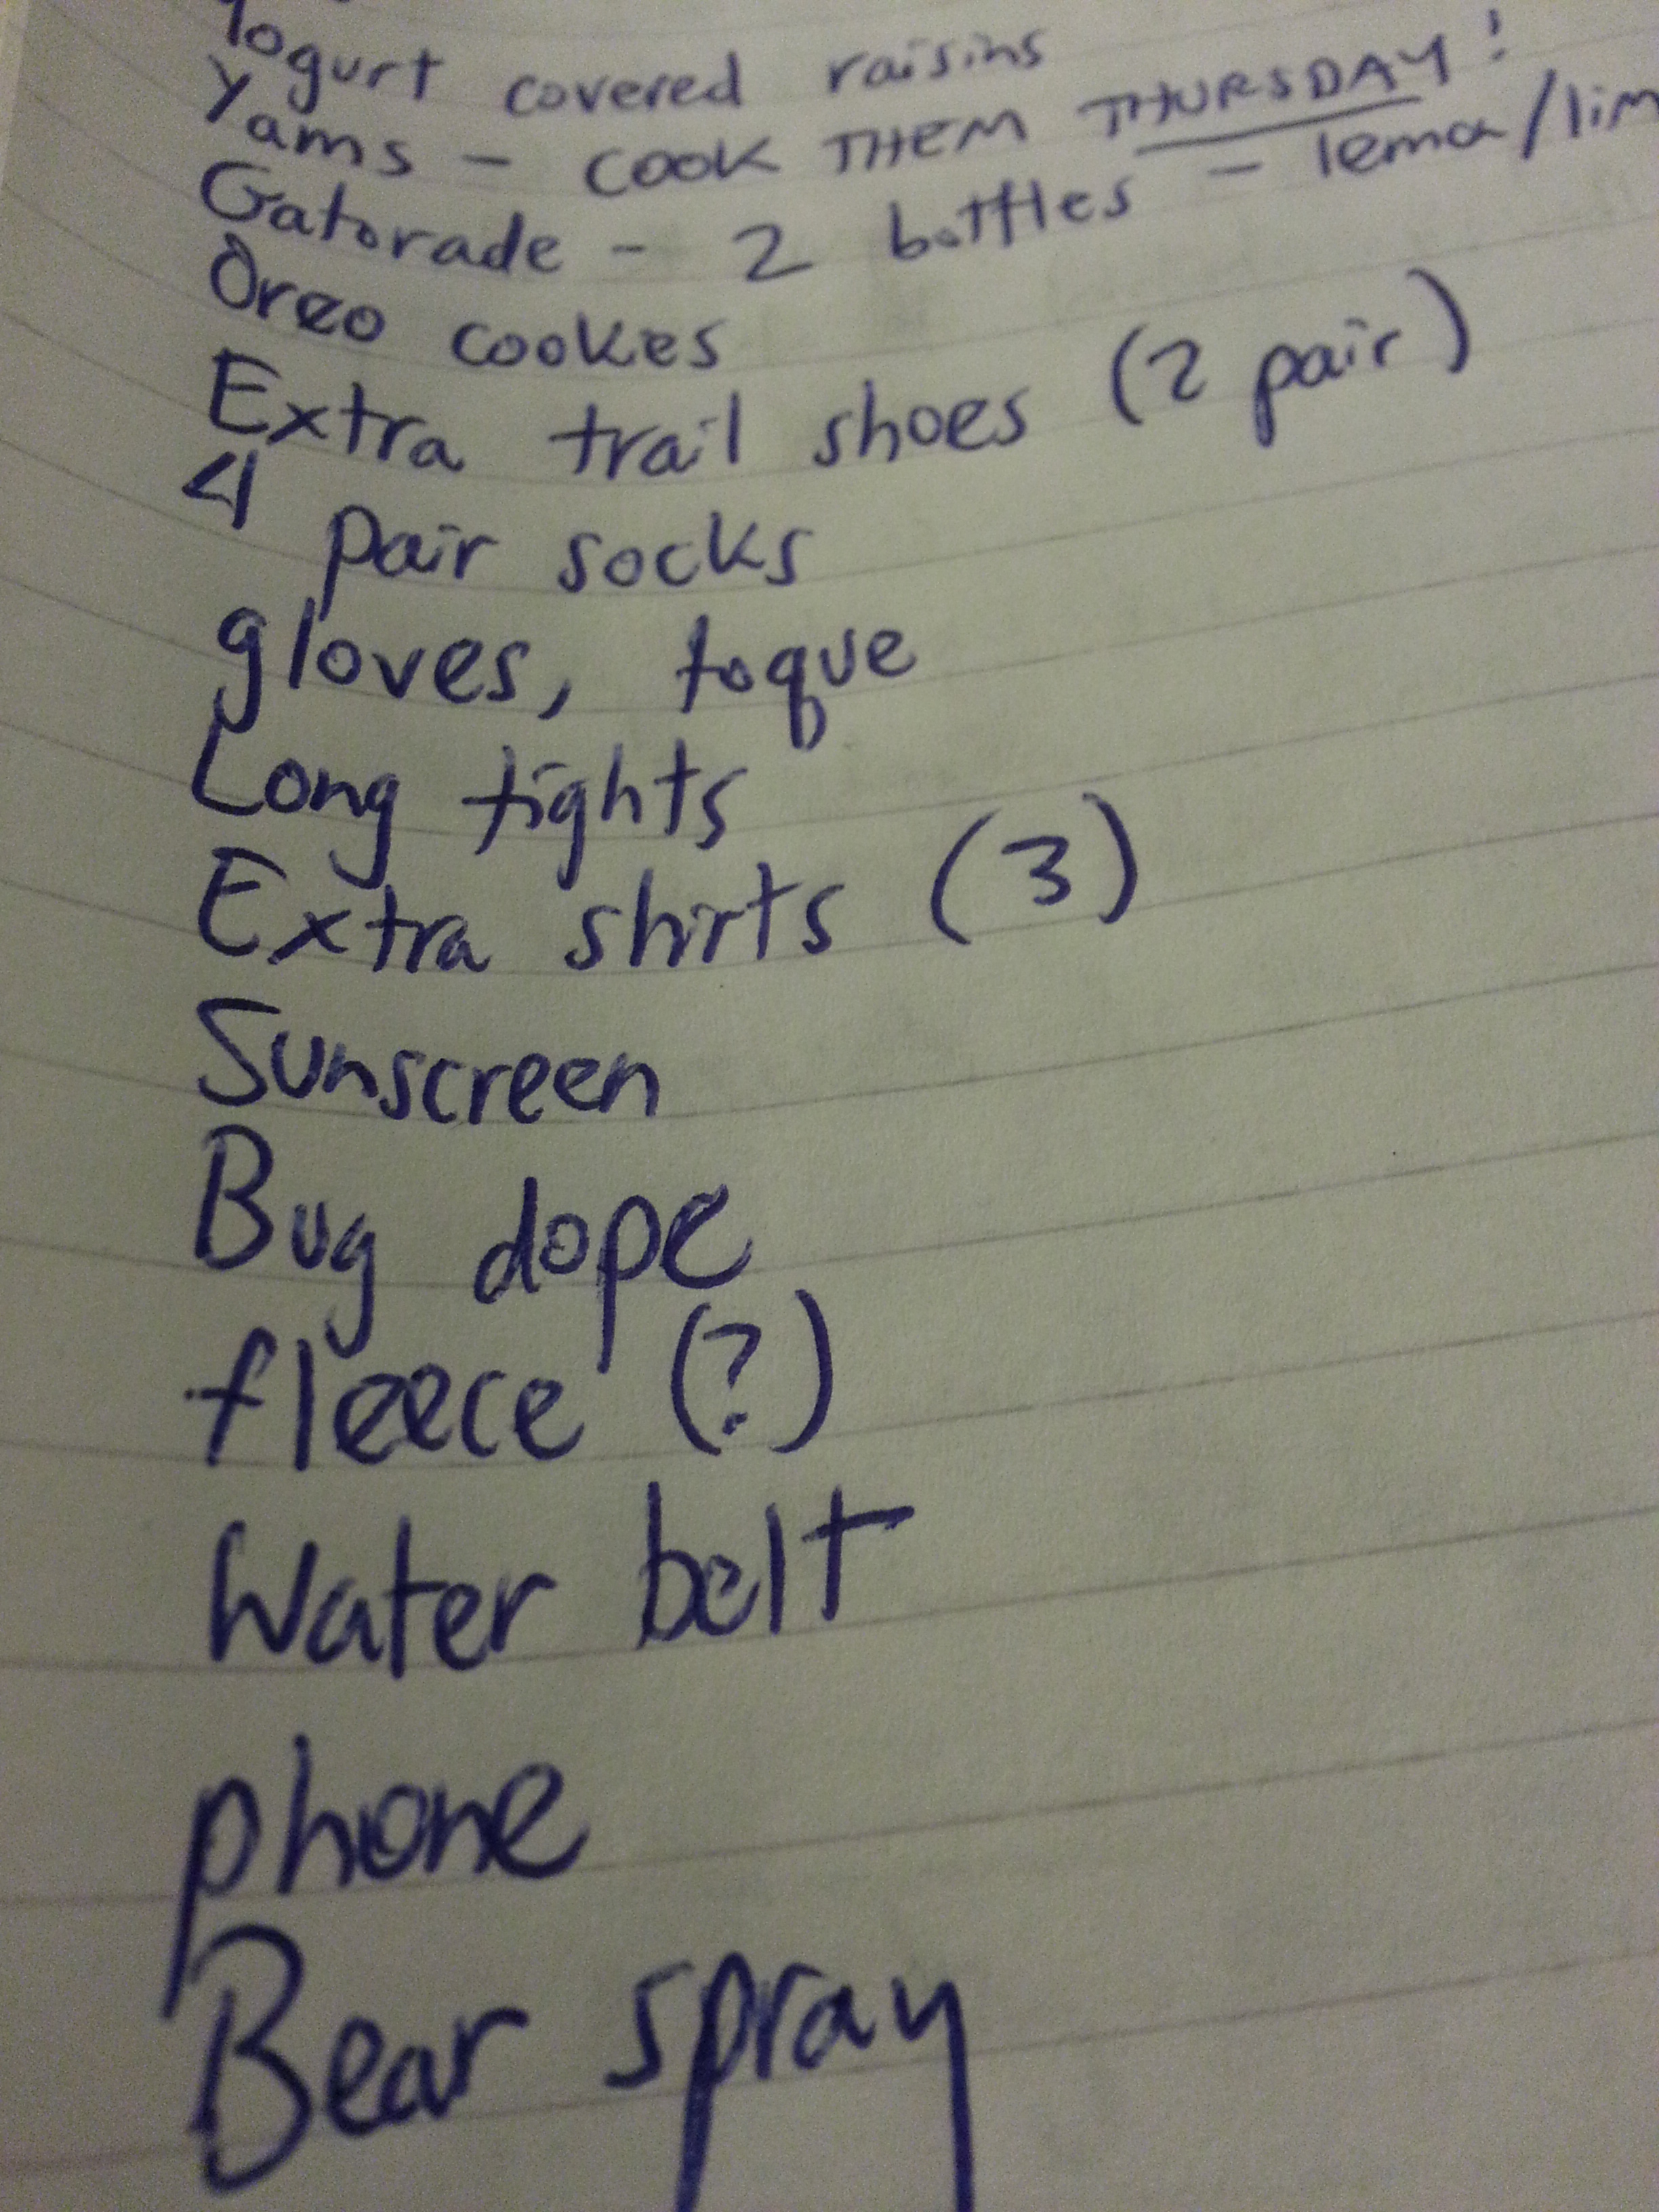 Yogurt covered raisins
Yams - COOK THEM THURSDAY!
Gatorade - 2 bottles - lemon/lim
Oreo cookies
Extra trail shoes (2 pair)
4 pair socks
gloves, toque
Long tights
Extra shirts (3)
Sunscreen
Bug dope
fleece (?)
Water belt
phone
Bear spray